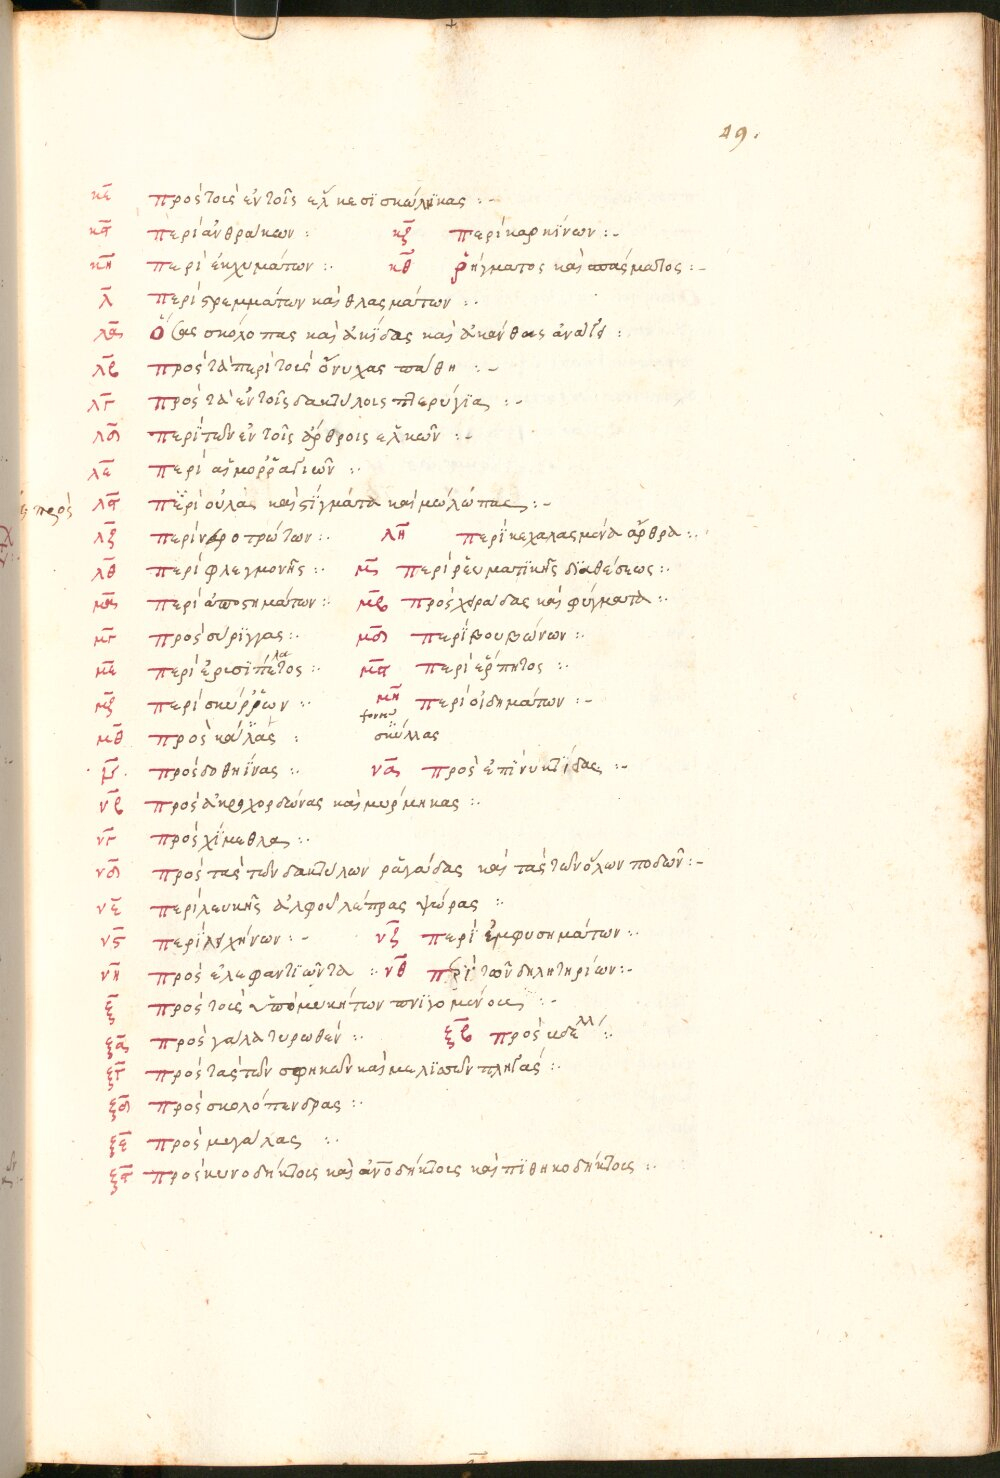 29.
κε πρὸς τοὺς ἐν τοῖς ἕλκεσι σκώληκας :-
κϛ περὶ ἀνθράκων : κζ περὶ καρκίνων :-
κη περὶ ἐκχυμάτων :. κθ ῥήγματος καὶ σπάσματος :-
λ περὶ στρεμμάτων καὶ θλασμάτων :.
λα σκόλοπας καὶ ἀκίδας καὶ ἀκάνθας :
λβ πρὸς τὰ περὶ τοὺς ὄνυχας πάθη :-
λγ πρὸς τὰ ἐν τοῖς δακτύλοις πτερύγια :-
λδ περὶ τῶν ἐν τοῖς ἄρθροις ἑλκῶν :-
λε περὶ αἱμορραγιῶν :.
λϛ περὶ οὐλὰς καὶ στίγματα καὶ μώλωπας :-
πρὸς
λζ περὶ νευροτρώτων :. λη περὶ κεχαλασμένα ἄρθρα :.
λθ περὶ φλεγμονῆς :. μ περὶ ῥευματικῆς διαθέσεως :.
μα περὶ ἀποστημάτων :. μβ πρὸς χοιράδας καὶ φύγματα :.
μγ πρὸς σύριγγας :. μδ περὶ βουβώνων :.
με περὶ ἐρισιπέλατος :. μϛ περὶ ἕρπητος :.
μζ περὶ σκύρρων :. μη περὶ οἰδημάτων :-
μθ πρὸς : σκύλλας
ν πρὸς δοθιήνας :. να πρὸς ἐπινυκτίδας :-
νβ πρὸς ἀκροχορδώνας καὶ μυρμηκας :.
νγ πρὸς χίμεθλα :.
νδ πρὸς τὰς τῶν δακτύλων ῥαγάδας καὶ τὰς τῶν ὅλων ποδῶν :-
νε περὶ λευκῆς ἀλφοῦ λέπρας ψώρας :
νϛ περὶ λιχήνων :- νζ περὶ ἐμφυσημάτων :.
νη πρὸς ἐλεφαντιῶντα :. νθ περὶ τῶν δηλητηρίων :-
ξ πρὸς τοὺς ὑπὸ μυκήτων πνιγομένους :-
ξα πρὸς γάλα τυρωθέν :. ξβ πρὸς βδέλλ :.
ξγ πρὸς τὰς τῶν σφηκῶν καὶ μελισσῶν πληγάς :.
ξδ πρὸς σκολόπενδρας :.
ξε πρὸς μεγάλας :.
ξϛ πρὸς κυνοδήκτους καὶ ἀνοδήκτους καὶ πιθηκοδήκτους :.